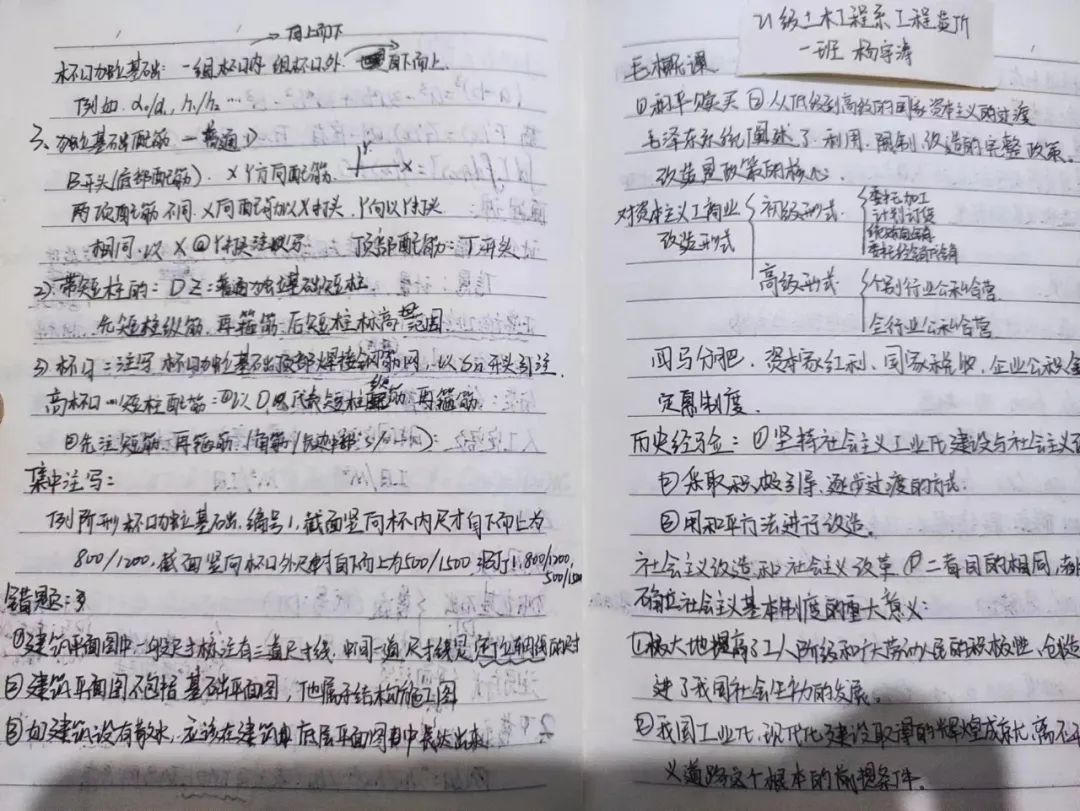 自上而下
杯口独立基础：一组杯口内 组杯口外 自下而上
例如：a₀/a₁, h₁/h₂ …
3、独立基础配筋 — 普通①
B开头(底部配筋). X Y方向配筋 Y X
两项配筋不同, X向配筋以X打头, Y向以Y打头
相同：以 X@Y打头注写 顶部配筋：T开头
2) 带短柱的：DZ：普通独立基础短柱
先短柱纵筋 再箍筋 后短柱标高范围
3) 杯口：注写杯口独立基础顶部焊接钢筋网, 以Sn开头引注.
高杯口…短柱配筋：①以O 代表短柱 筋, 再箍筋
②先注 筋 再箍筋 (角筋/ ):
集中注写：
例 阶形杯口独立基础. 编号1, 截面竖向杯内尺寸自下而上为
800/1200, 截面竖向杯口外尺寸自下而上为500/1500 1, 800/1200,
500/1500
错题：
①建筑平面图中一般尺寸标注有三道尺寸线, 中间一道尺寸线是定位轴线的尺寸
②建筑平面图不包括基础平面图, 他属于结构施工图
③如建筑设有散水, 应该在建筑 底层平面图中表达出来
21级土木工程系工程
一班 杨宇涛
毛概课
①和平赎买 ②从低级到高级的国家资本主义的过渡
毛泽东系统阐述了利用、限制、改造的完整政策.
改造是政策的核心.
对资本主义工商业 初级形式 委托加工
改造形式 计划订货
统购包销
委托经销代销
高级形式 个别行业公私合营
全行业公私合营
四马分肥. 资本家红利、国家税收、企业公积金
定息制度.
历史经验：①坚持社会主义工业化建设与社会主义改
②采取积极引导、逐步过渡的方式.
③用和平方法进行改造.
社会主义改造和社会主义改革 ①二者目的相同,
确立社会主义基本制度的重大意义：
①极大地提高了工人阶级和广大劳动人民的积极性、创造
进了我国社会生力的发展。
②我国工业化、现代化建设取得的辉煌成就, 离不
义道路这个根本的前提条件.